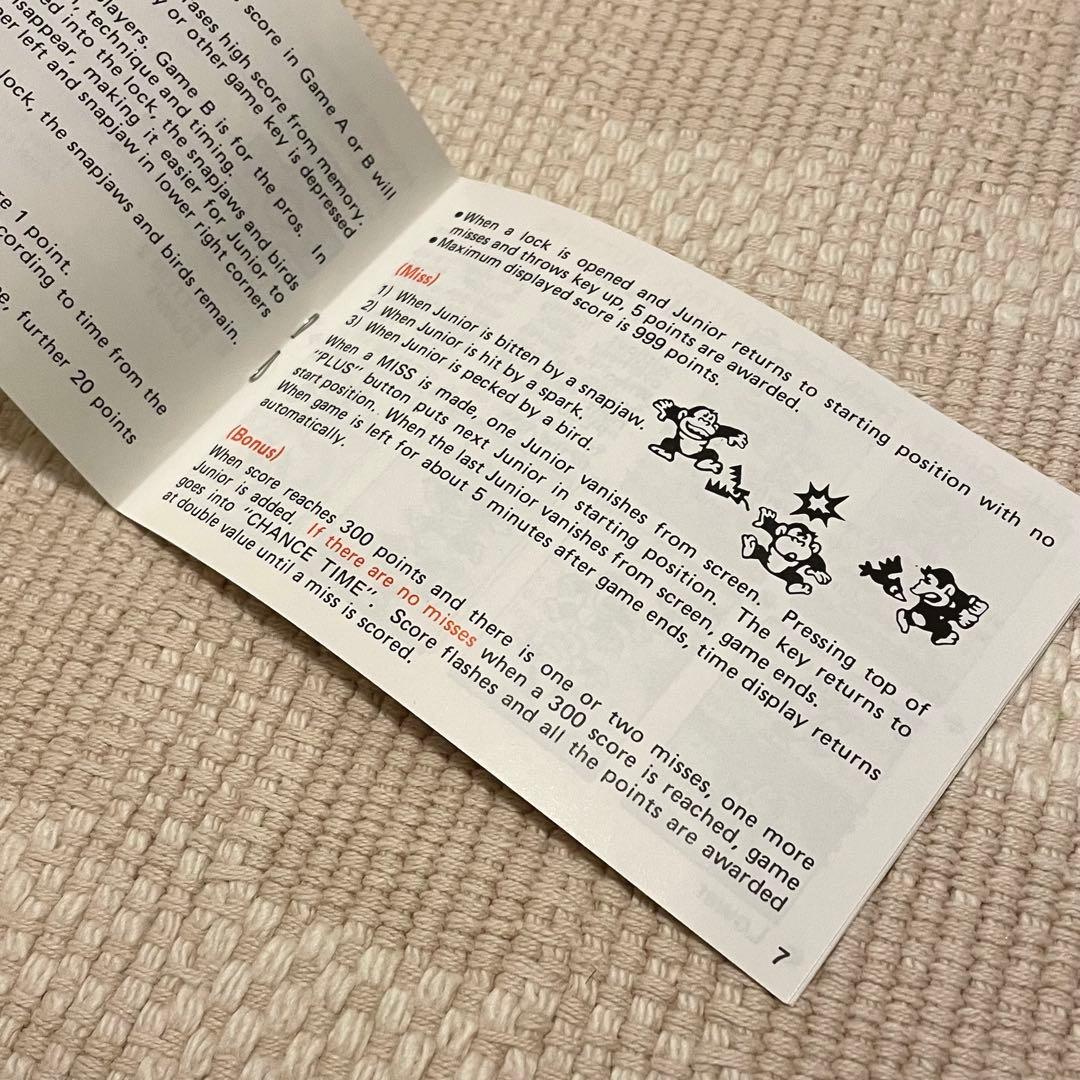 score in Game A or B will
ases high score from memory,
y or other game key is depressed
layers. Game B is for the pros. In
, technique and timing.
ed into the lock, the snapjaws and birds
isappear, making it easier for Junior to
per left and snapjaw in lower right corners
lock, the snapjaws and birds remain.
re 1 point.
cording to time from the
e, further 20 points
• When a lock is opened and Junior returns to starting position with no
misses and throws key up, 5 points are awarded.
• Maximum displayed score is 999 points.
(Miss)
1) When Junior is bitten by a snapjaw.
2) When Junior is hit by a spark.
3) When Junior is pecked by a bird.
When a MISS is made, one Junior vanishes from screen. Pressing top of
"PLUS" button puts next Junior in starting position. The key returns to
start position. When the last Junior vanishes from screen, game ends.
When game is left for about 5 minutes after game ends, time display returns
automatically.
(Bonus)
When score reaches 300 points and there is one or two misses, one more
Junior is added. If there are no misses when a 300 score is reached, game
goes into "CHANCE TIME". Score flashes and all the points are awarded
at double value until a miss is scored.
7